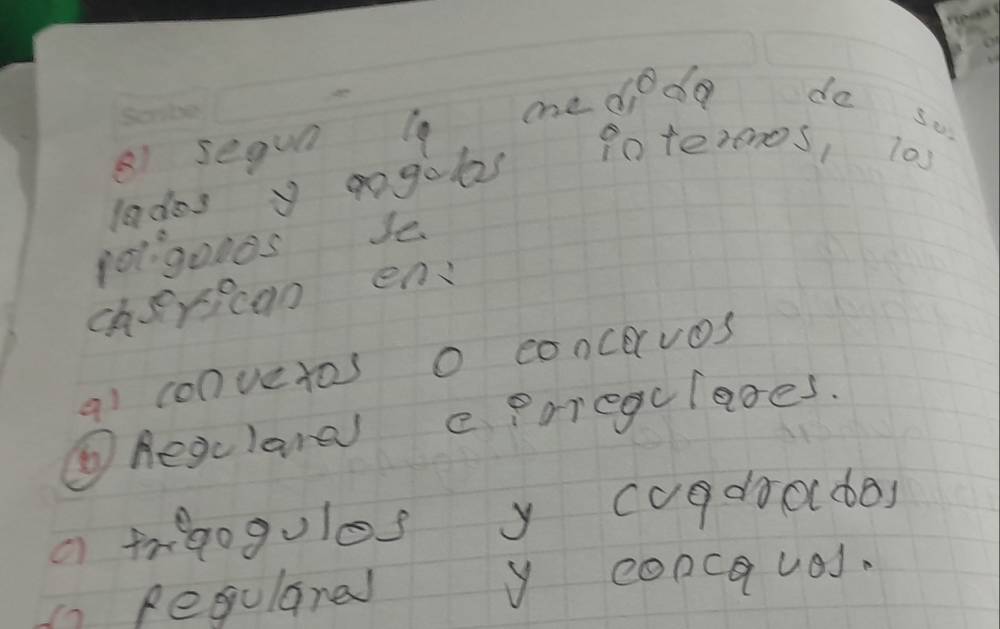 8) segun la medida de sus
lados y angulos internos, los
poligonos se
clasifican en:
a) convexos o concavos
b) Regulares e irregulares.
c) triangulos y cuadrados
d) Regulares y concavos.